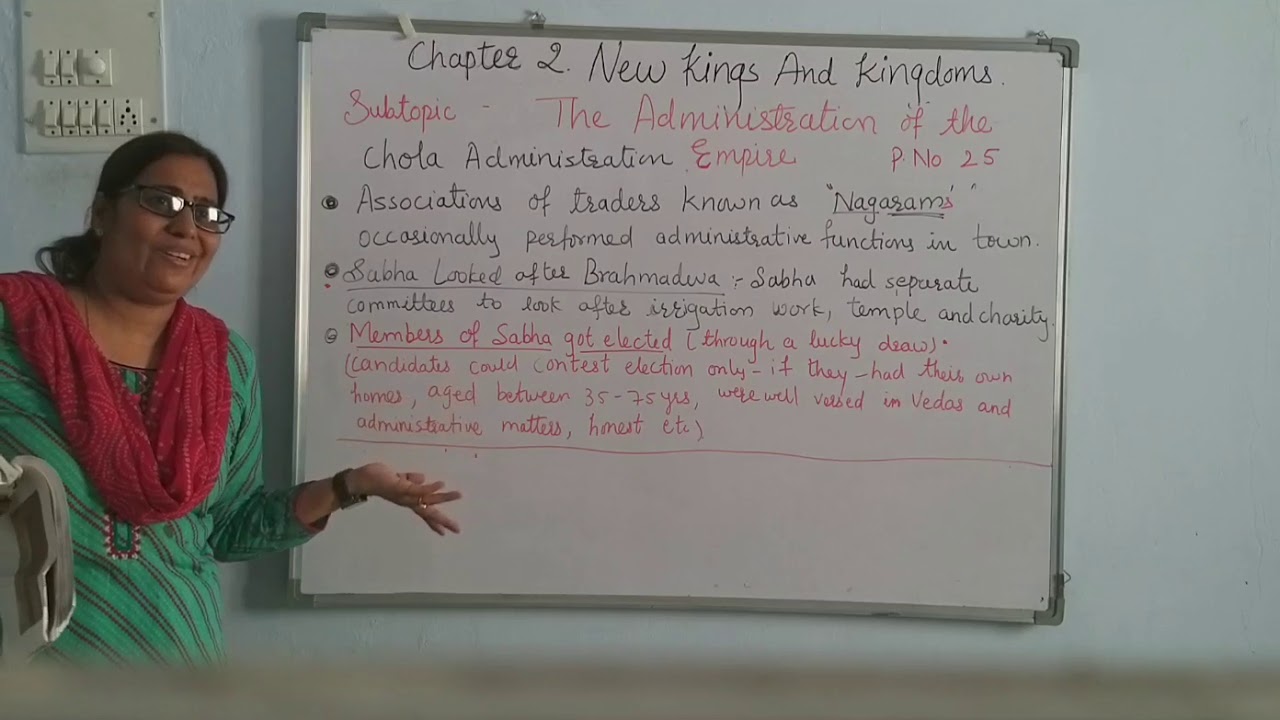 Chapter 2. New Kings And Kingdoms.
Subtopic - The Administration of the
Chola Administration Empire P. No 25
Associations of traders known as "Nagarams"
occasionally performed administrative functions in town.
Sabha Looked after Brahmadwa :- Sabha had separate
committees to look after irrigation work, temple and charity.
Members of Sabha got elected (through a lucky draw).
(candidates could contest election only - if they - had their own
homes, aged between 35-75 yrs, were well versed in Vedas and
administrative matters, honest etc)